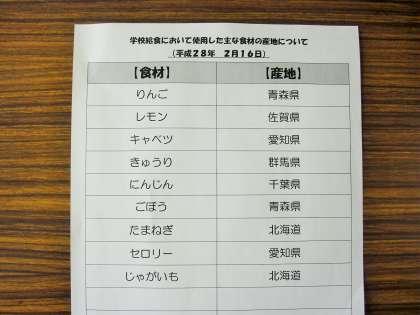 学校給食において使用した主な食材の産地について
(平成28年 2月16日)
【食材】 【産地】
りんご 青森県
レモン 佐賀県
キャベツ 愛知県
きゅうり 群馬県
にんじん 千葉県
ごぼう 青森県
たまねぎ 北海道
セロリー 愛知県
じゃがいも 北海道